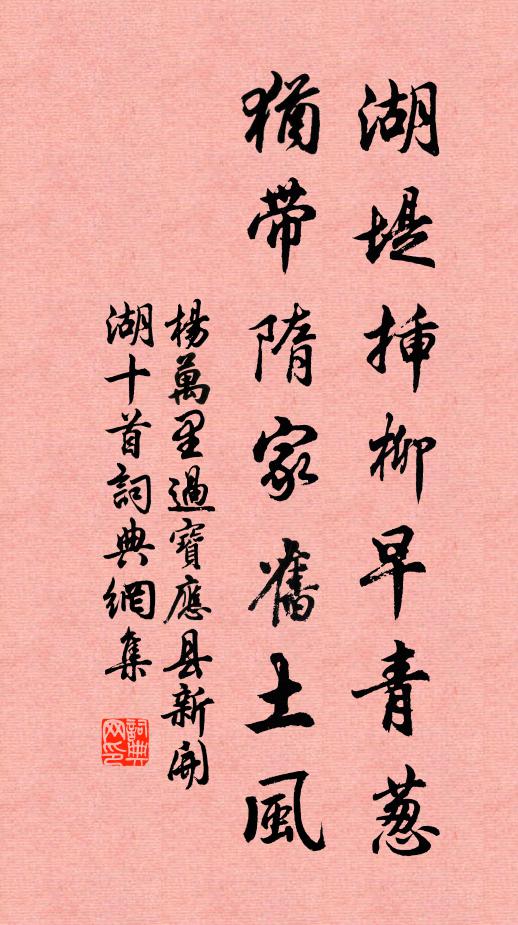 湖堤揷柳早青葱
猶帶隋家舊土風
楊萬里過寶應县新開
湖十首詞典網集
詞典
网印